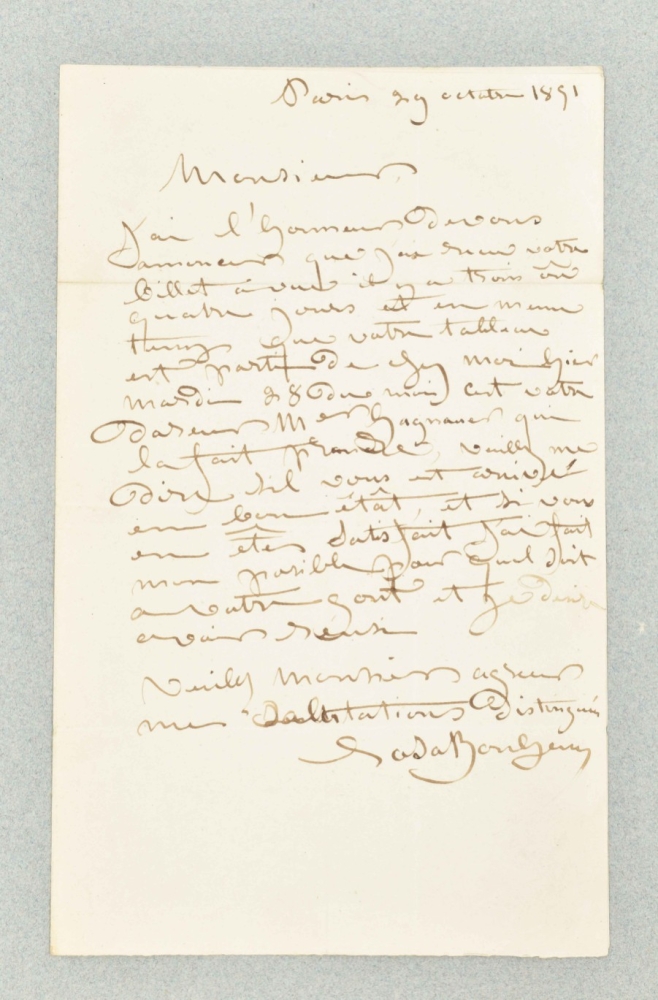 Paris 29 octobre 1851
Monsieur,
J'ai l'honneur de vous
annoncer que j'ai reçu votre
billet à vue il y a trois ou
quatre jours et en meme
temps que votre tableau
est parti de chez moi hier
mardi 28 du mois c'est votre
qui
la fait prendre, veuillez me
dire s'il vous est arrivé
en bon état, et si vous
en êtes satisfait j'ai fait
mon posible pour quel soit
a votre gout et je désire
avoir réusi
veuillez Monsieur agreer
mes salutations distinguées
Rosa Bonheur